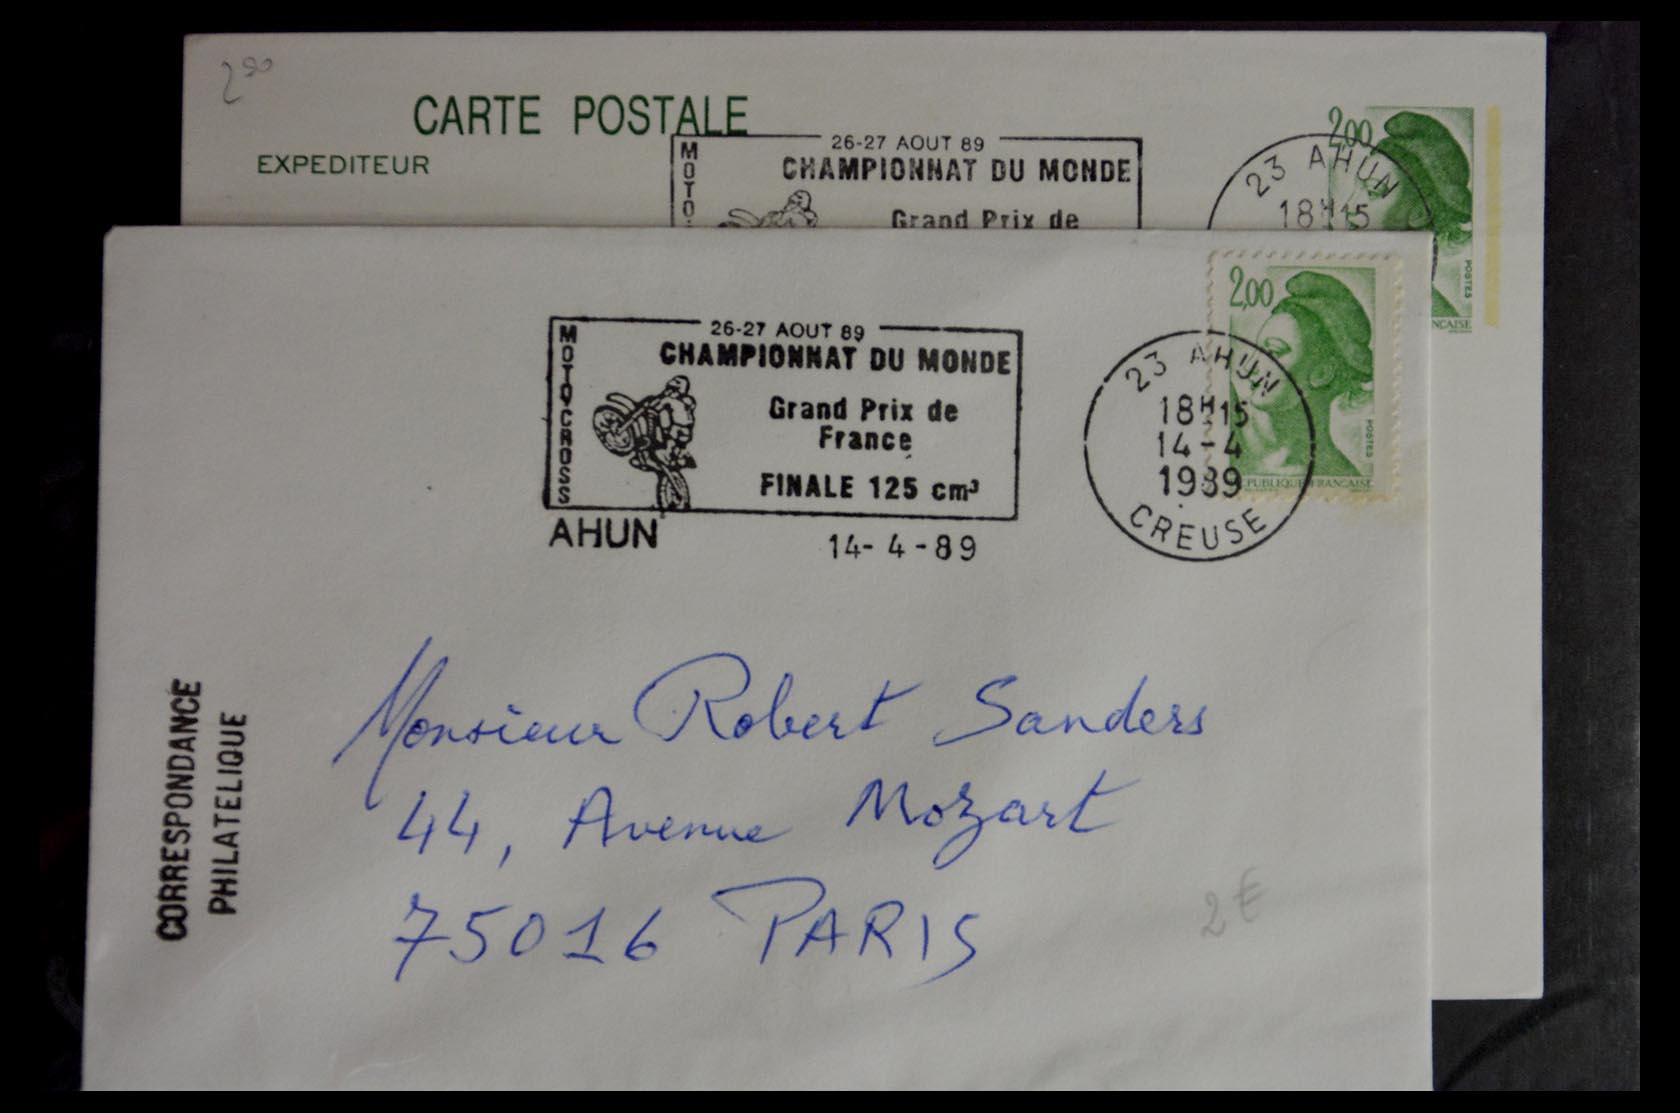 2,90
CARTE POSTALE
EXPEDITEUR
26-27 AOUT 89
CHAMPIONNAT DU MONDE
Grand Prix de
MOTO
2,00
23 AHUN
18H15
POSTES
26-27 AOUT 89
CHAMPIONNAT DU MONDE
MOTO-CROSS
Grand Prix de
France
FINALE 125 cm³
AHUN
14-4-89
2,00
POSTES
REPUBLIQUE FRANCAISE
23 AHUN
18H15
14-4
1989
CREUSE
CORRESPONDANCE
PHILATELIQUE
Monsieur Robert Sanders
44, Avenue Mozart
75016 PARIS
2 €